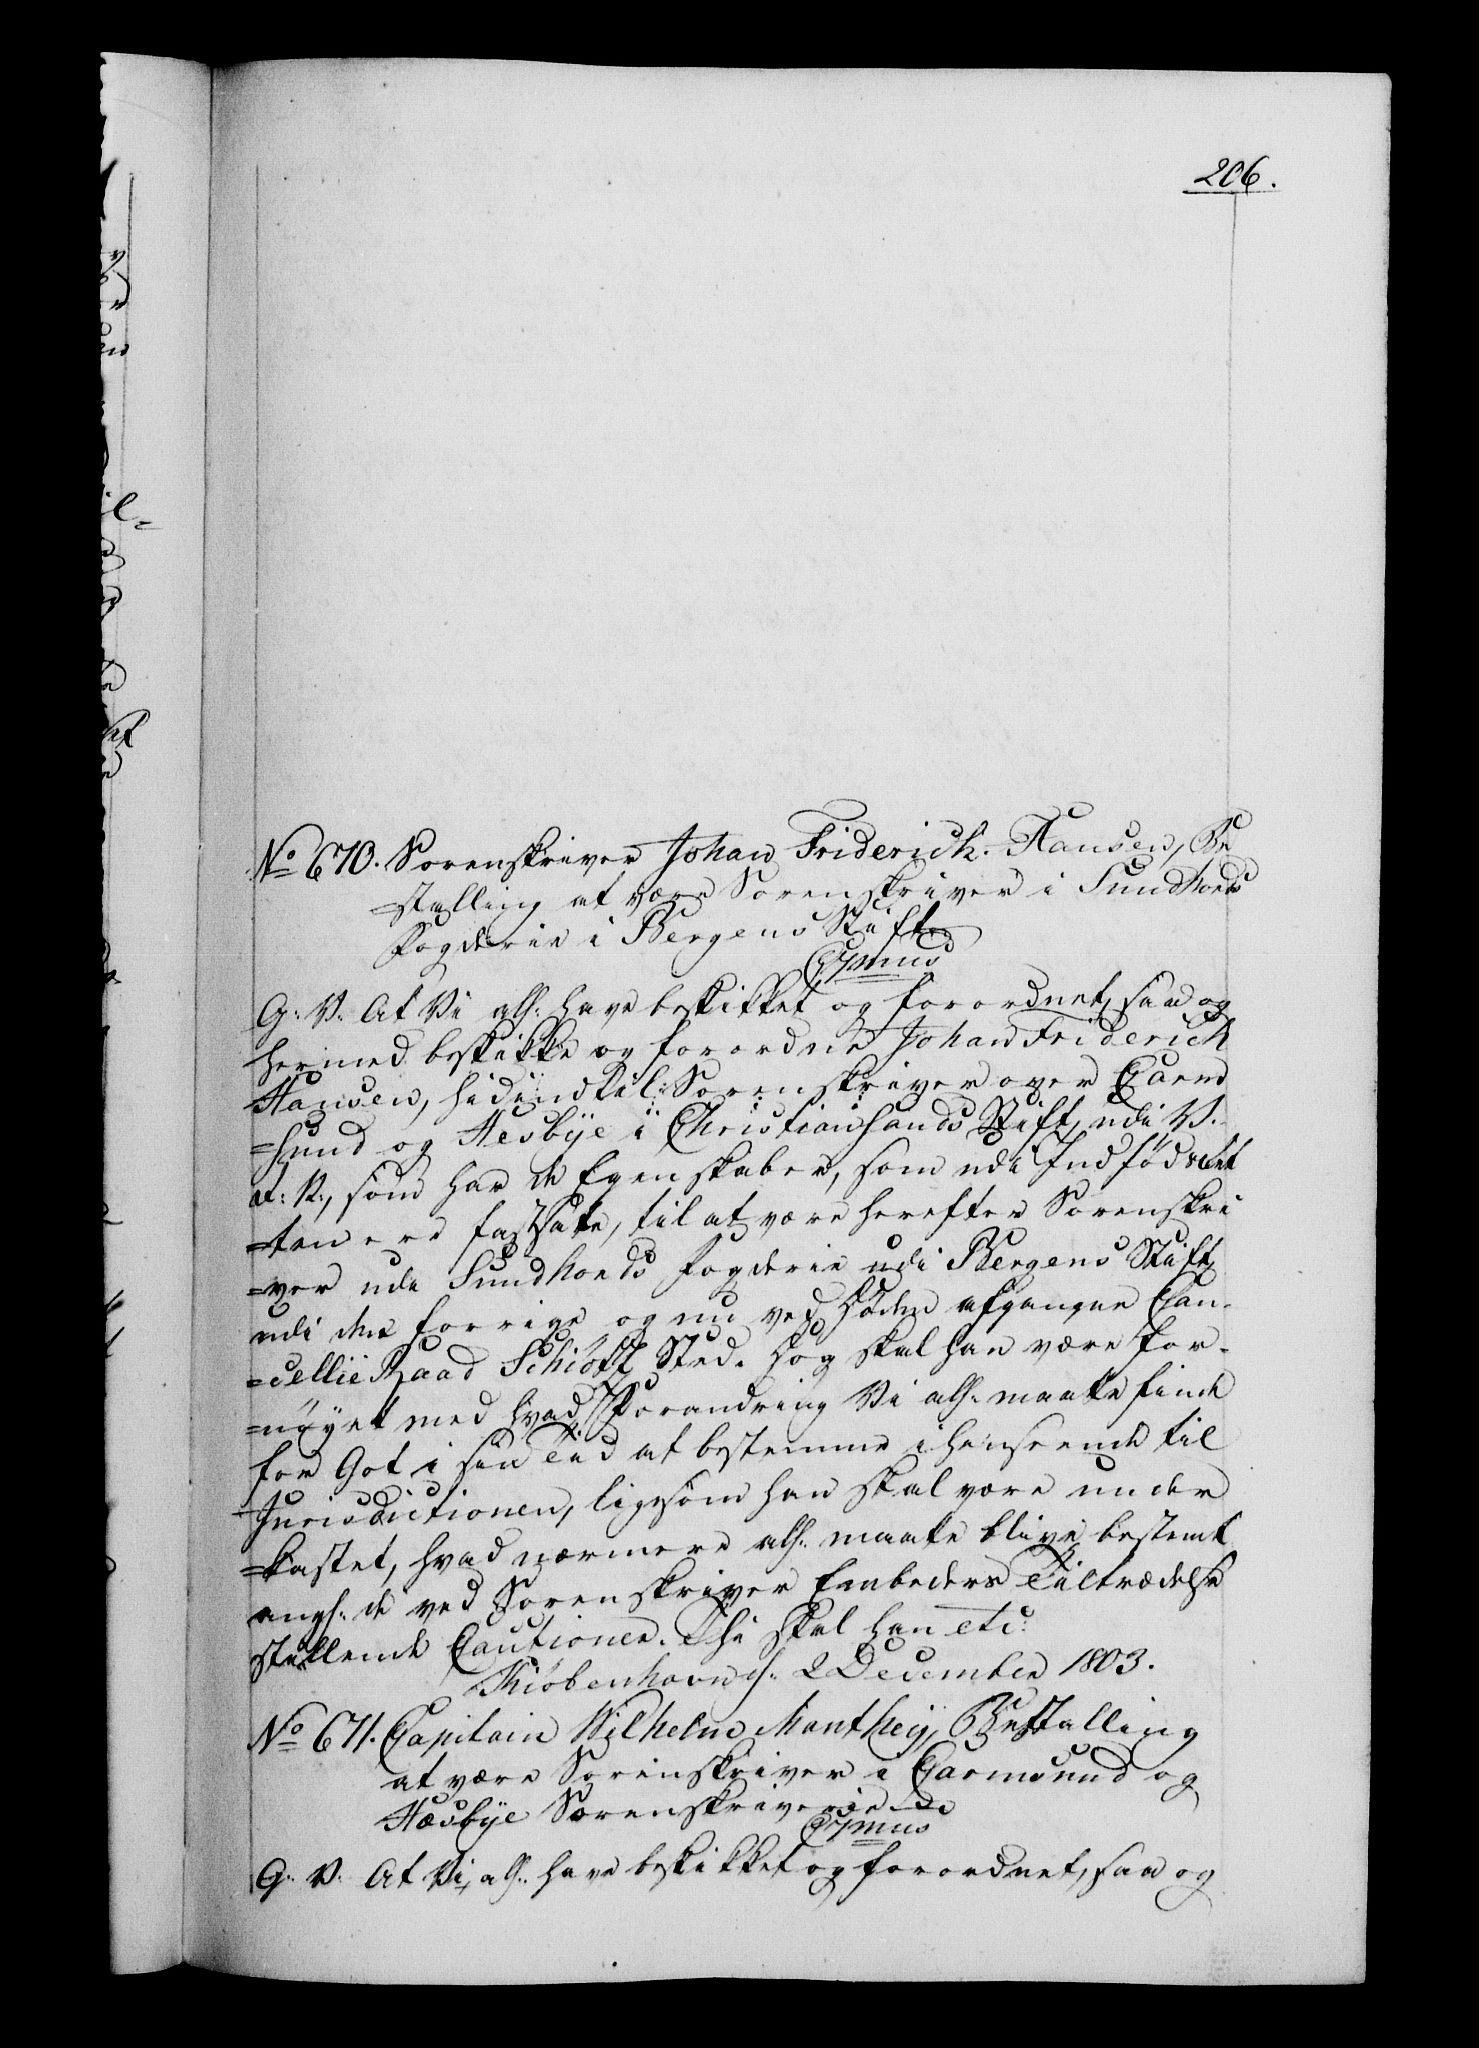 206.
No 670. Sorenskriver Johan Friderich Hansen, Be
=stalling at være Sorenskriver i Sundhords
Fogderie i Bergens Stift.
C7mus
G: V: At Vi allr: have beskikket og forordnet, saa og
hermed beskikke og forordne Johan Friderich
Hansen, hidindtil Sorenskriver over Carm
=sund og Hesbÿe i Christiansands Stift, udi V.
R: N:, som har de Egenskaber, som udi Indfødsret
=ten ere fastsatte, til at være herefter Sorenskri
=ver udi Sundhords Fogderie udi Bergens Stift
udi den forrige og nu ved Døden afgangne Can-
=cellie Raad Schiøtz Sted. Dog skal han være for-
=nøyet med hvad Forandring Vi allr: maatte finde
for Got i sin Tid at bestemme i henseende til
Jurisdictionen, ligesom han skal være under
=kastet, hvad nærmere allr: maatte blive bestemt
angl: de ved Sorenskriver Embeders Tiltrædelse
stillende Cautioner. Thi skal han etc:
Kiøbenhavn d: 2 December 1803.
No 671. Capitain Wilhelm Mantheÿ, Bestalling
at være Sorenskriver i Carmsund og
Hæsbÿe Sorenskriverie
C7mus
G: V: At Vi, allr: have beskikket og forordnet, saa og